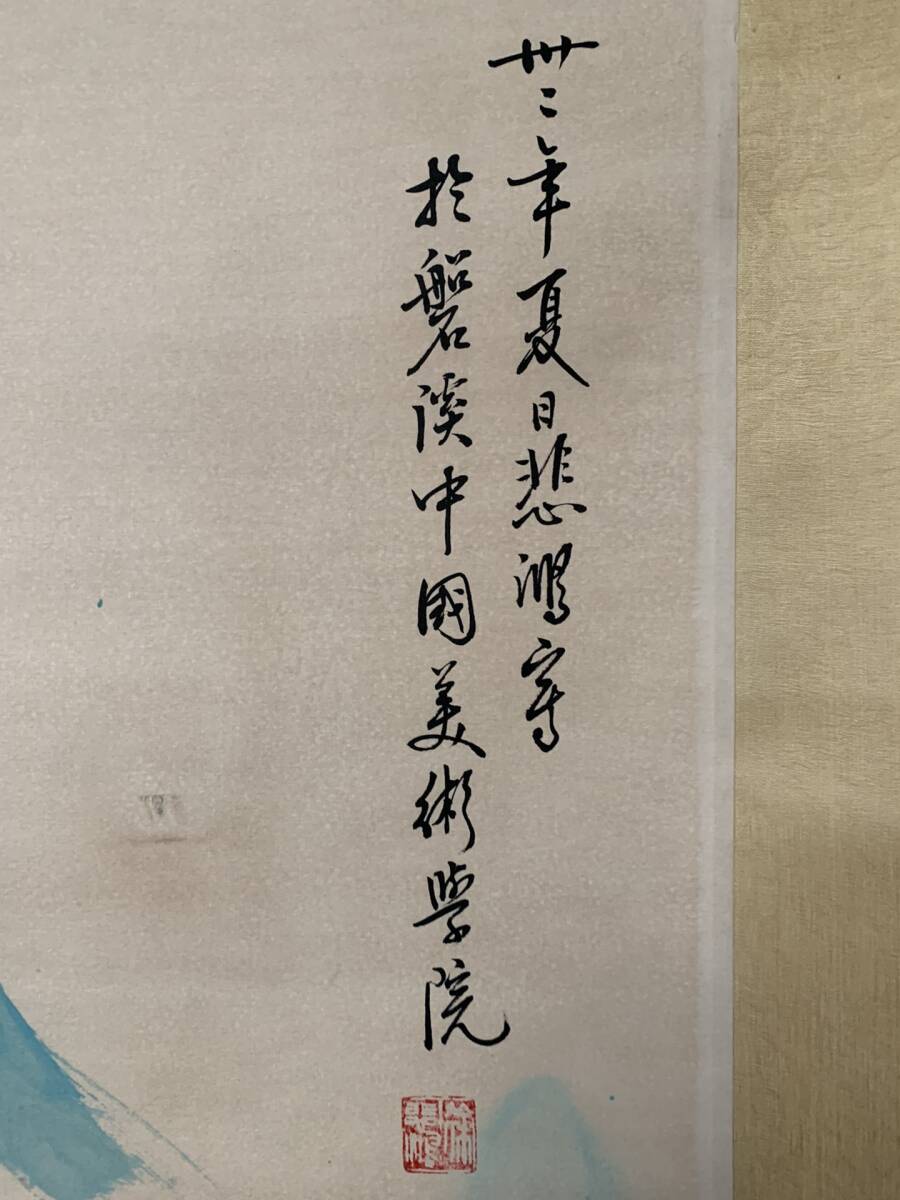 卅二年夏日悲鴻寫
於磐溪中國美術學院